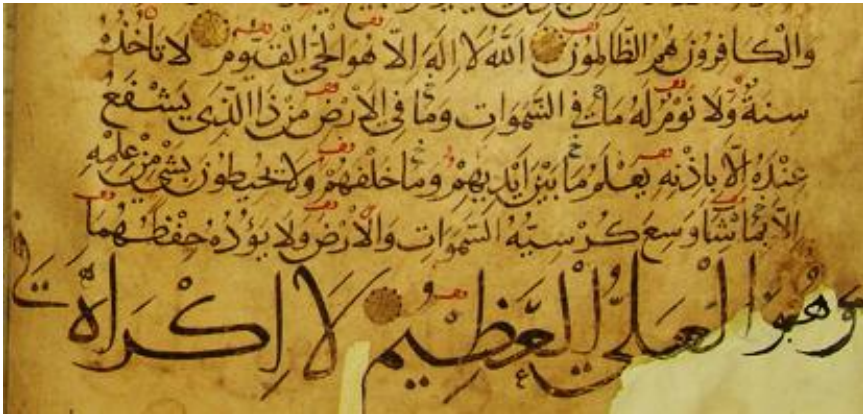 والكافرون هم الظالمون الله لا اله الا هو الحي القيوم لا تأخذه
سنة ولا نوم له ما في السموات وما في الارض من ذا الذي يشفع
عنده الا باذنه يعلم ما بين ايديهم وما خلفهم ولا يحيطون بشيء من علمه
الا بما شا وسع كرسيه السموات والارض ولا يؤده حفظهما
وهو العلي العظيم لا اكراه في